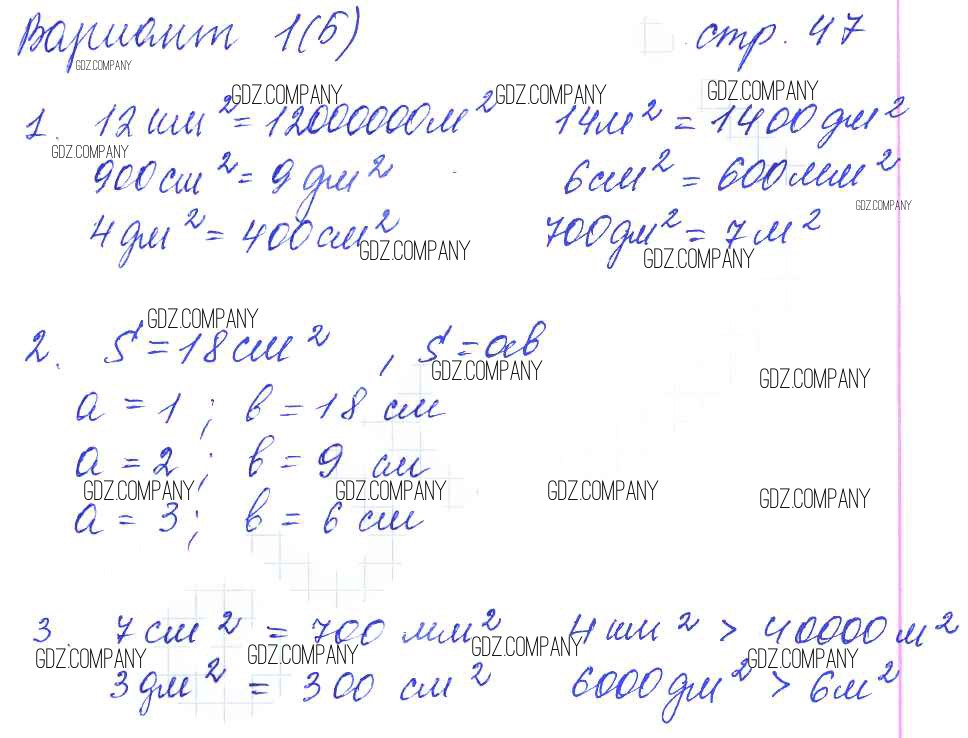 Вариант 1(Б) стр. 47
GDZ.COMPANY
GDZ.COMPANY GDZ.COMPANY GDZ.COMPANY
1. 12 км² = 12000000м² 14м² = 1400 дм²
GDZ.COMPANY
900 см² = 9 дм² 6 см² = 600 мм²
GDZ.COMPANY
4 дм² = 400 см² 700 дм² = 7 м²
GDZ.COMPANY GDZ.COMPANY
GDZ.COMPANY
2. S = 18 см² , S = ав
GDZ.COMPANY GDZ.COMPANY
а = 1 ; в = 18 см
а = 2 ; в = 9 см
GDZ.COMPANY GDZ.COMPANY GDZ.COMPANY GDZ.COMPANY
а = 3 ; в = 6 см
3. 7 см² = 700 мм² 4 км² > 40000 м²
GDZ.COMPANY GDZ.COMPANY GDZ.COMPANY GDZ.COMPANY
3 дм² = 300 см² 6000 дм² > 6 м²